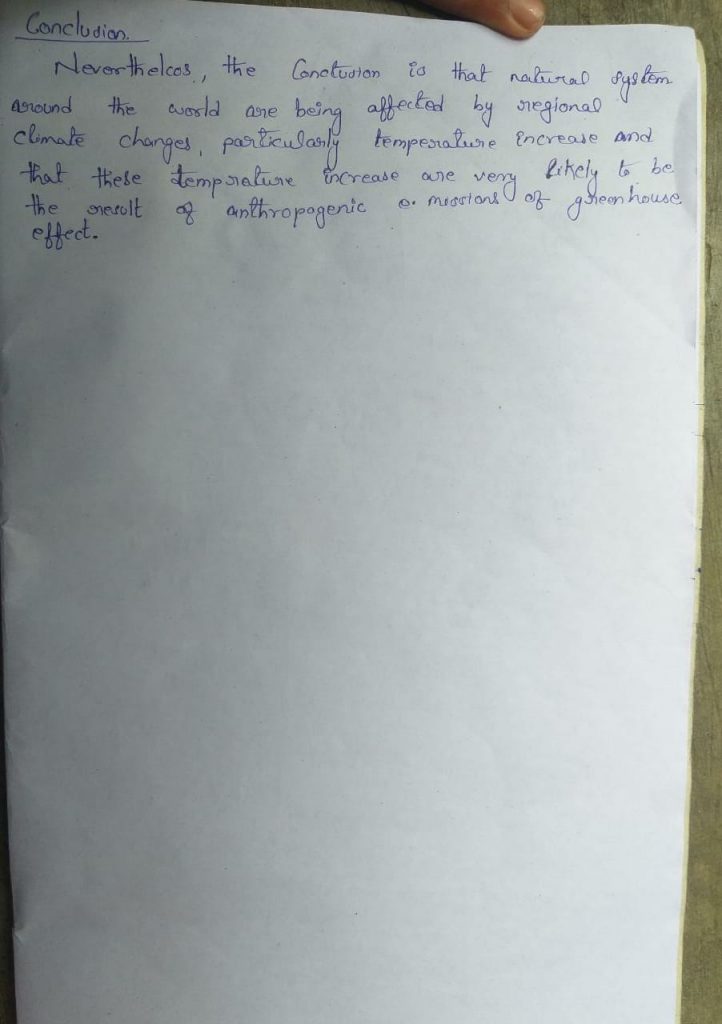 Conclusion.
Nevertheless, the Conclusion is that natural system
around the world are being affected by regional
climate changes, particularly temperature increase and
that these temprature increase are very likely to be
the result of anthropogenic e.missions of greenhouse
effect.